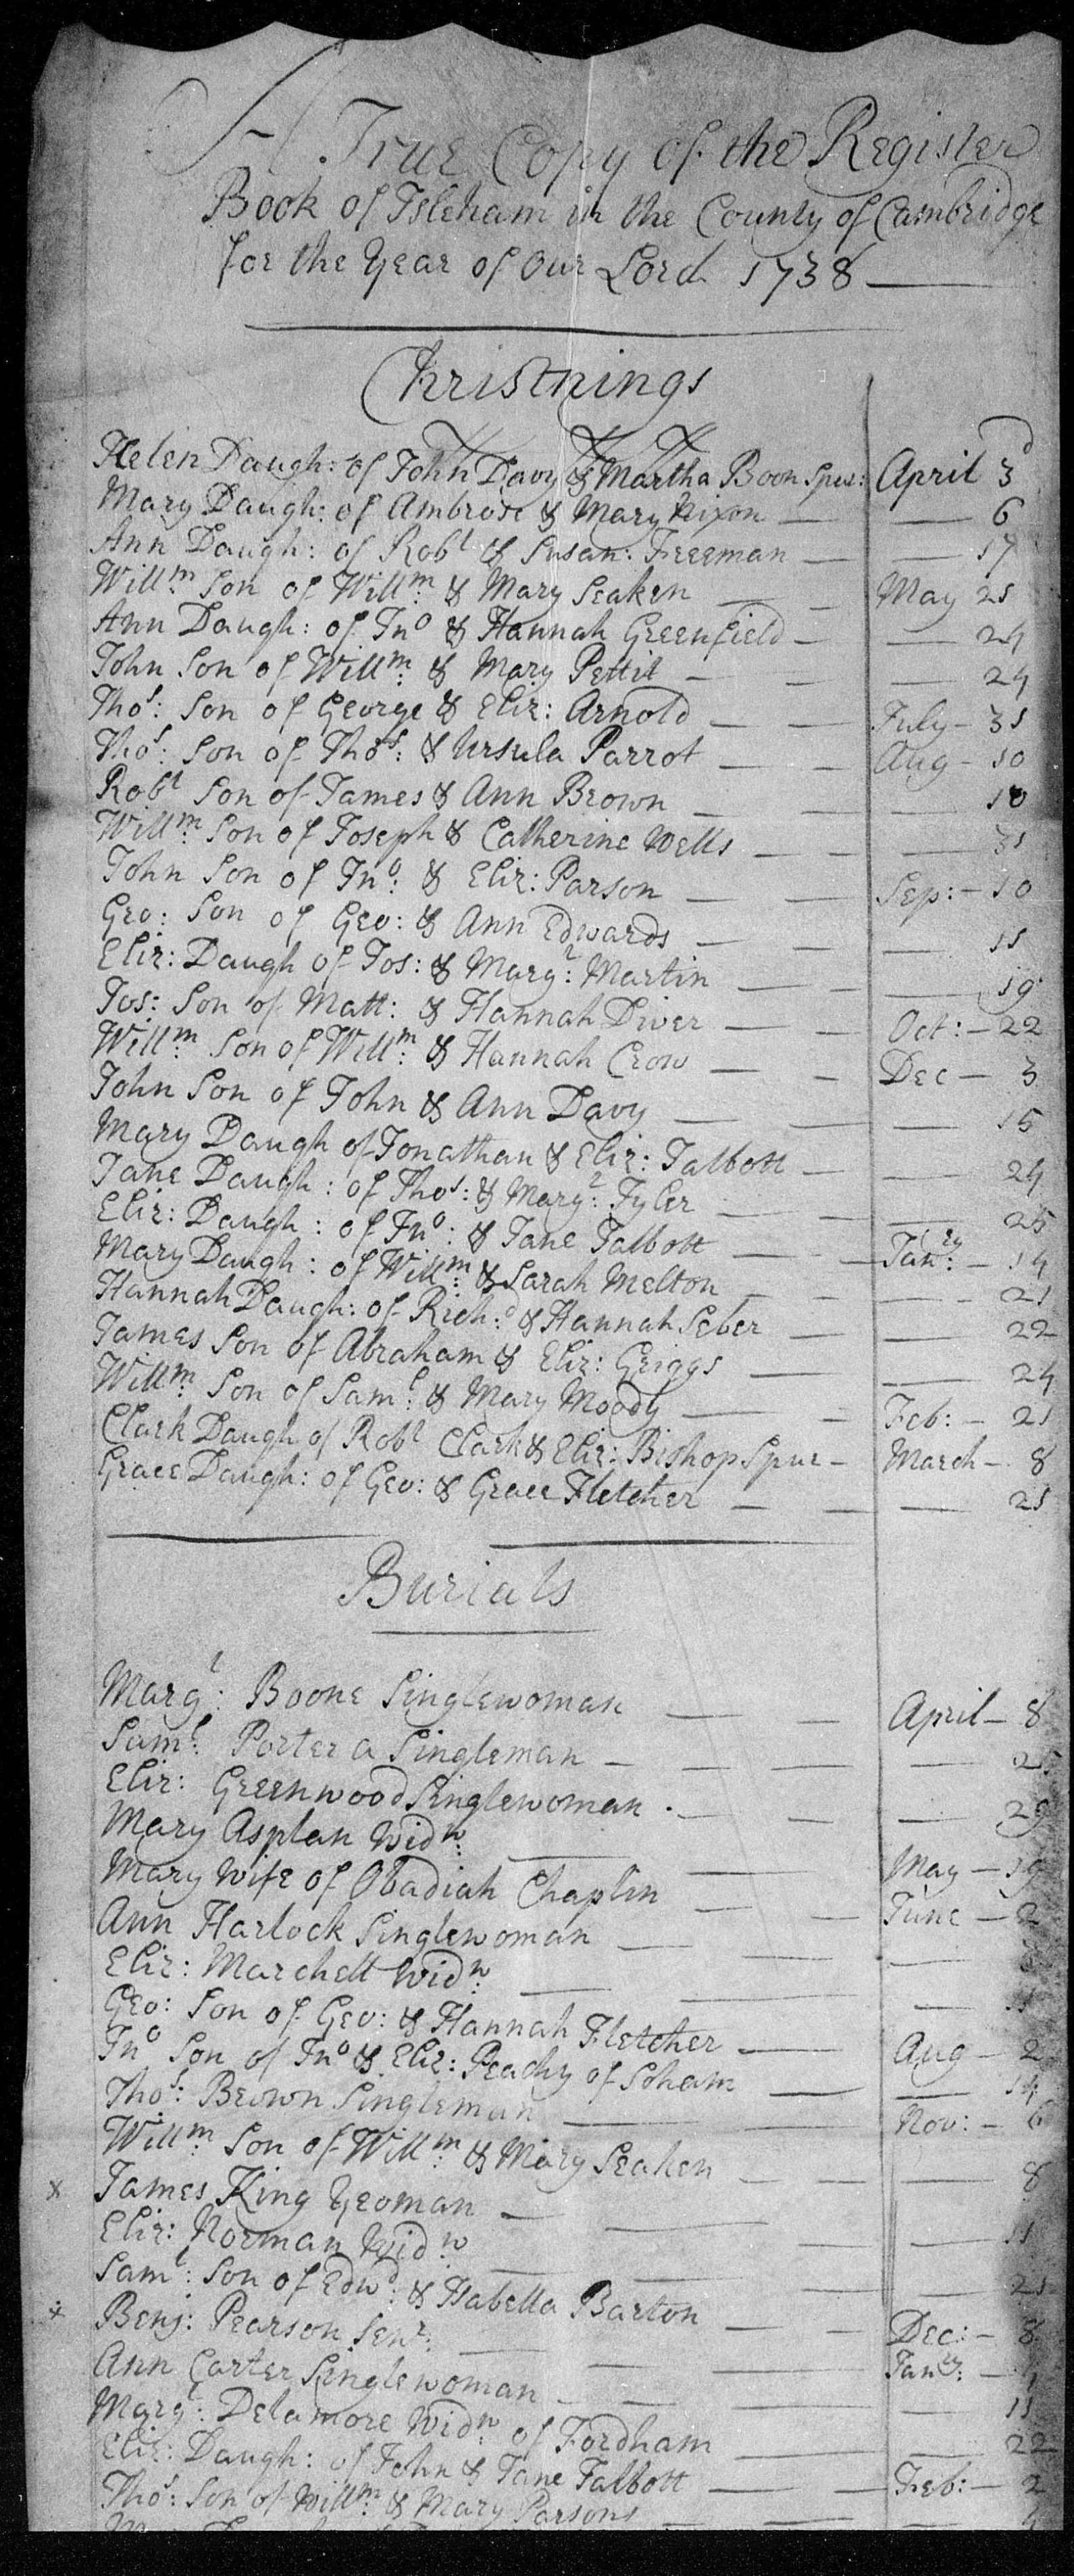 A True Copy of the Register
Book of Isleham in the County of Cambridge
for the Year of Our Lord 1738
Christnings
Helen Daugh: of John Davy & Martha Boon Spur: April 3d
Mary Daugh: of Ambrose & Mary Nixon — 6
Ann Daugh: of Robt & Susan: Freeman — 17
Willm: Son of Willm: & Mary Seaken — May 21
Ann Daugh: of Jno & Hannah Greenfield — 24
John Son of Willm: & Mary Pettit — 24
Thos: Son of George & Eliz: Arnold — July – 31
Thos: Son of Thos: & Ursula Parrot — Aug – 10
Robt Son of James & Ann Brown — 10
Willm: Son of Joseph & Catherine Wells — 31
John Son of Jno: & Eliz: Parson — Sep: – 10
Geo: Son of Geo: & Ann Edwards — 11
Eliz: Daugh of Jos: & Margt: Martin — 19
Jos: Son of Matt: & Hannah Diver — Oct: – 22
Willm: Son of Willm: & Hannah Crow — Dec – 3
John Son of John & Ann Davy — 15
Mary Daugh of Jonathan & Eliz: Talbott — 24
Jane Daugh: of Thos: & Margt: Tyler — 25
Eliz: Daugh: of Jno: & Jane Talbott — Janry: – 14
Mary Daugh: of Willm: & Sarah Melton — 21
Hannah Daugh: of Richd: & Hannah Seber — 22
James Son of Abraham & Eliz: Griggs — 24
Willm: Son of Saml: & Mary Moody — Feb: – 21
Clark Daugh of Robt Clark & Eliz: Bishop Spur – March – 8
Grace Daugh: of Geo: & Grace Fletcher — 21
Burials
Margt: Boone Singlewoman — April – 8
Saml: Porter a Singleman — 25
Eliz: Greenwood Singlewoman — 29
Mary Asplan Widw: — May – 19
Mary Wife of Obadiah Chaplin — June – 2
Ann Harlock Singlewoman —
Eliz: Marchett Widw: — 11
Geo: Son of Geo: & Hannah Fletcher — Aug – 2
Jno Son of Jno & Eliz: Peachy of Soham — 14
Thos: Brown Singleman — Nov: – 6
Willm: Son of Willm: & Mary Seaken — 8
x James King Yeoman — 11
Eliz: Norman Widw: — 21
Saml: Son of Edwd: & Isabella Barton — Dec: – 8
x Benj: Pearson Senr: — Janry: –
Ann Carter Singlewoman — 11
Margt: Delamore Widw: of Fordham — 22
Eliz: Daugh: of John & Jane Talbott — Feb: – 2
Thos: Son of Willm: & Mary Parsons —